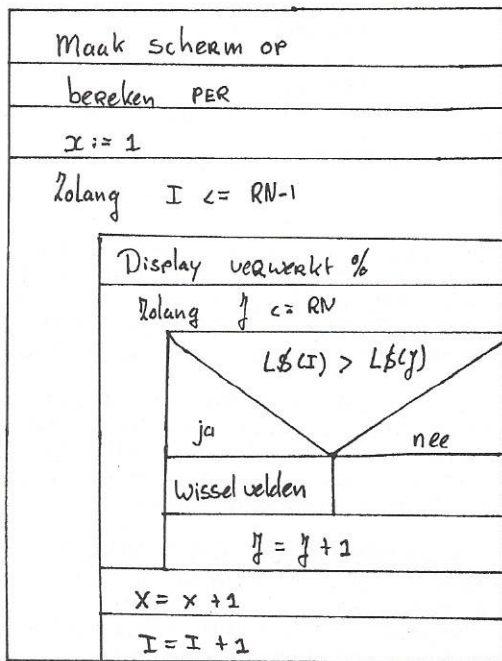 Maak scherm op
bereken PER
x := 1
Zolang I <= RN-1
Display verwerkt %
Zolang J <= RN
L$(I) > L$(J)
ja nee
Wissel velden
J = J + 1
X = x + 1
I = I + 1